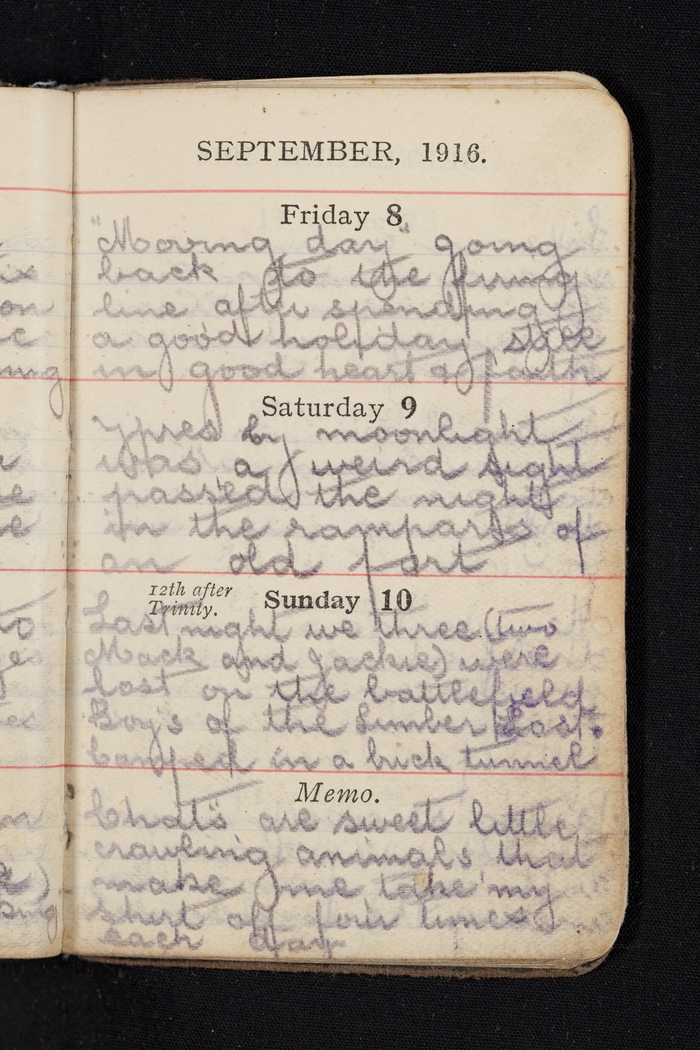 SEPTEMBER, 1916.
Friday 8
"Moving day" going
back to the firing
line after spending
a good holiday, still
in good heart & faith
Saturday 9
Ypres by moonlight
was a weird sight
passed the night
in the ramparts of
an old fort
12th after
Trinity.
Sunday 10
Last night we three (two
Mack and Jackie) were
lost on the battlefield
Boys of the Limber Lost.
Camped in a brick tunnel
Memo.
Chats are sweet little
crawling animals that
make me take my
shirt off four times
each day